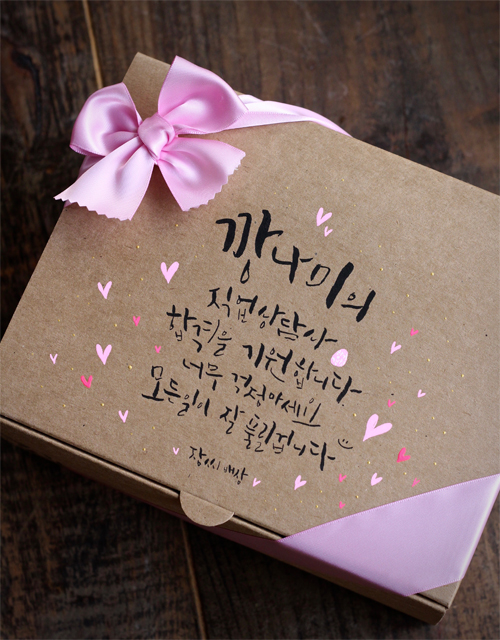 깡나미의
직업상담사
합격을 기원합니다.
너무 걱정마세요
모든일이 잘 풀릴겁니다
장씨 배상